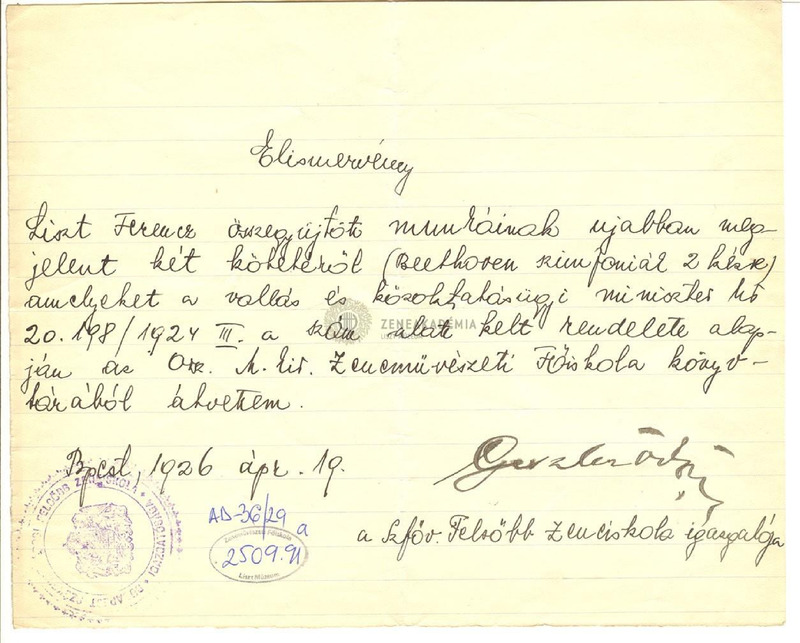 Elismervény
Liszt Ferencz összegyűjtött munkáinak ujabban meg-
jelent két kötetéről (Beethoven szimfoniái 2 kézre)
amelyeket a vallás és közoktatásügyi miniszter úr
20.198/1924 III. a szám alatt kelt rendelete alap-
ján az Orsz. M. kir. Zeneművészeti Főiskola könyv-
tárából átvettem.
Bpest, 1926 ápr. 19.
a Szföv. Felsőbb Zeneiskola igazgatója
AD-36/29
a
2509.91
Liszt Múzeum
ZENEAKADÉMIA
FELSŐBB ZENEISKOLA